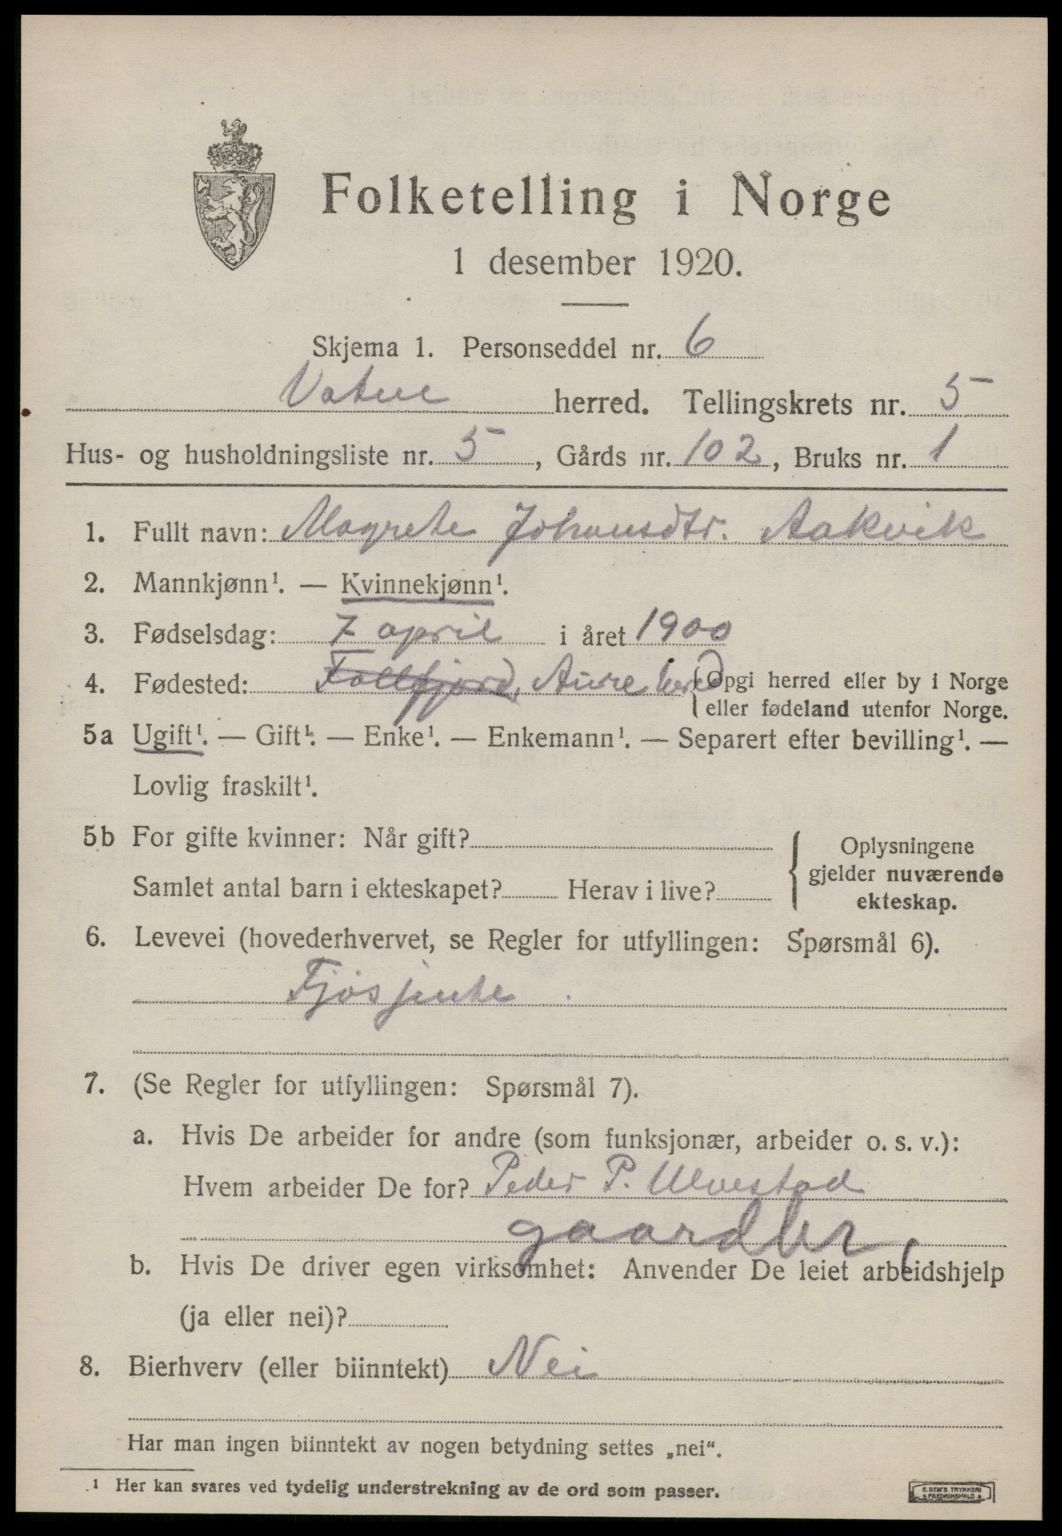 Folketelling i Norge
1 desember 1920.
Skjema 1. Personseddel nr. 6
Vatne herred. Tellingskrets nr. 5
Hus- og husholdningsliste nr. 5, Gårds nr. 102, Bruks nr. 1
1. Fullt navn: Magrete Johansdtr. Aakvik
2. Mannkjønn¹. — Kvinnekjønn¹.
3. Fødselsdag: 7 april i året 1900
4. Fødested: Aure herred { Opgi herred eller by i Norge
eller fødeland utenfor Norge.
5a Ugift¹. — Gift¹. — Enke¹. — Enkemann¹. — Separert efter bevilling¹. —
Lovlig fraskilt¹.
5b For gifte kvinner: Når gift? { Oplysningene
gjelder nuværende
Samlet antal barn i ekteskapet? Herav i live?
ekteskap.
6. Levevei (hovederhvervet, se Regler for utfyllingen: Spørsmål 6).
Fjøsjente
7. (Se Regler for utfyllingen: Spørsmål 7).
a. Hvis De arbeider for andre (som funksjonær, arbeider o. s. v.):
Hvem arbeider De for? Peder P. Ulvestad
gaardbr,
b. Hvis De driver egen virksomhet: Anvender De leiet arbeidshjelp
(ja eller nei)?
8. Bierhverv (eller biinntekt) Nei
Har man ingen biinntekt av nogen betydning settes „nei“.
¹ Her kan svares ved tydelig understrekning av de ord som passer.